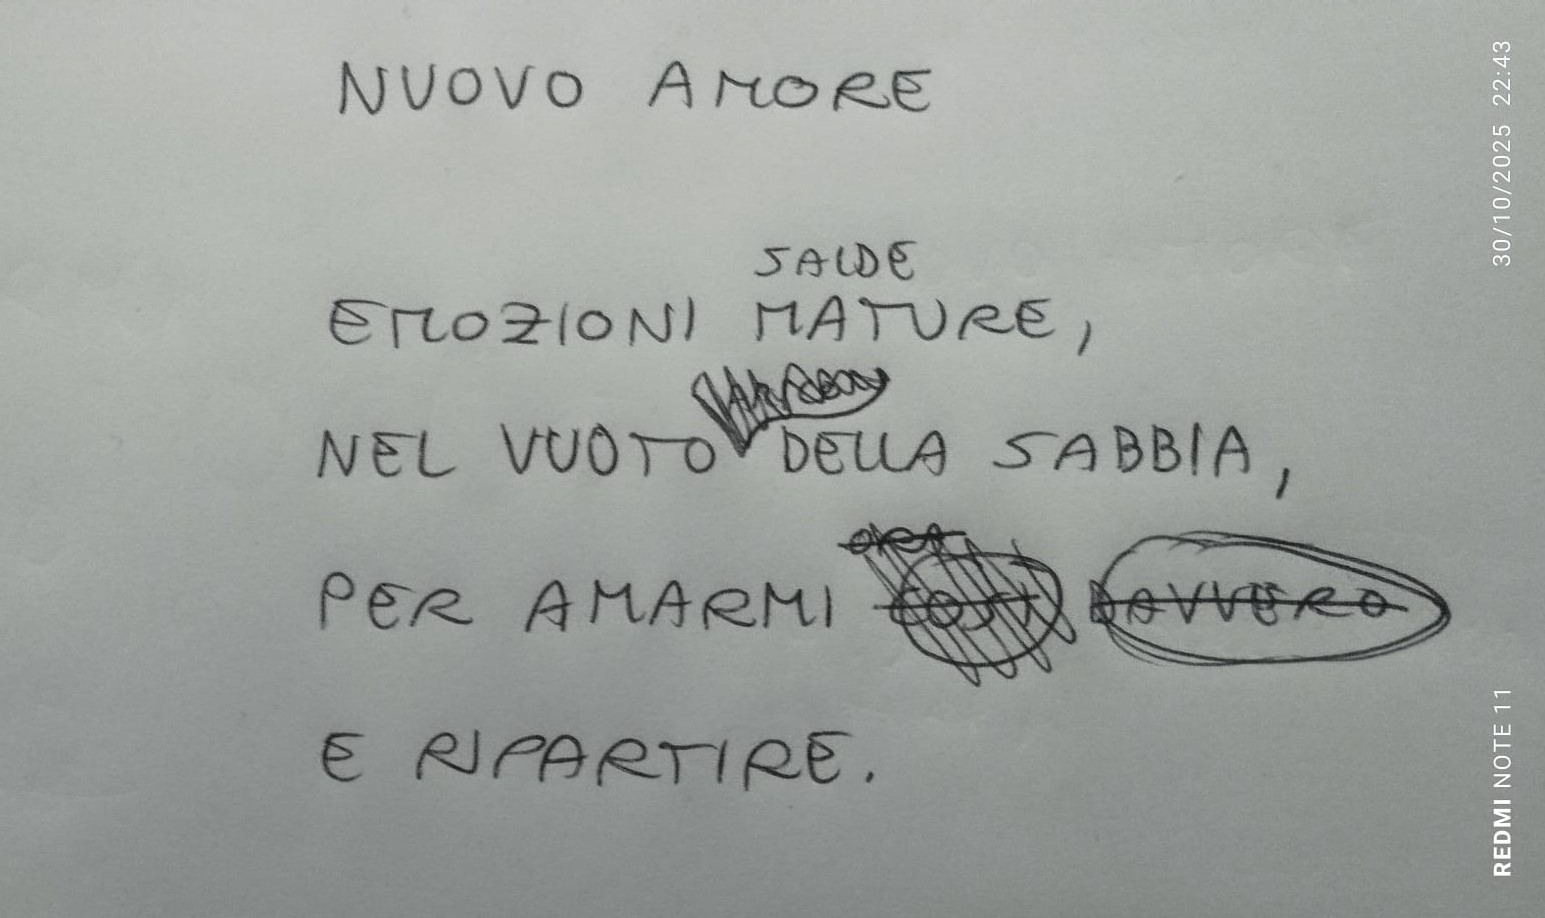 NUOVO AMORE
SALDE
EMOZIONI MATURE,
NEL VUOTO DELLA SABBIA,
PER AMARMI DAVVERO
E RIPARTIRE.
30/10/2025 22:43
REDMI NOTE 11